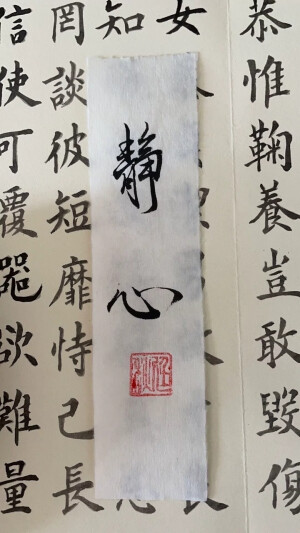 恭惟鞠養豈敢毀傷
女
知
罔談彼短靡恃己長
信使可覆噐欲難量
靜心